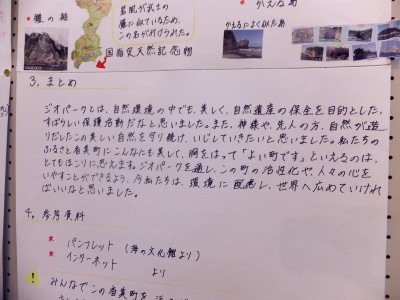 鎧の袖
岩肌が武士の
鎧に似ているため、
この名が付けられた。
国指定天然記念物
かえる島
かえるによく似た島
3. まとめ
ジオパークとは、自然環境の中でも、美しく、自然遺産の保全を目的とした、
すばらしい保護活動だなと思いました。また、神様や、先人の方、自然が造
りだしたこの美しい自然を守り続け、いじしていきたいと思いました。私たちの
ふるさと香美町にこんなにも美しく、胸をはって「よい町です」といえるのは、
とてもほこりに思えます。ジオパークを通し、この町の活性化や、人々の心を
いやすことができるよう、今私たちは、環境に配慮し、世界へ広めていけれ
ばいいなと思いました。
4. 参考資料
パンフレット (海の文化館より)
インターネット
より
!
みんなでこの香美町を